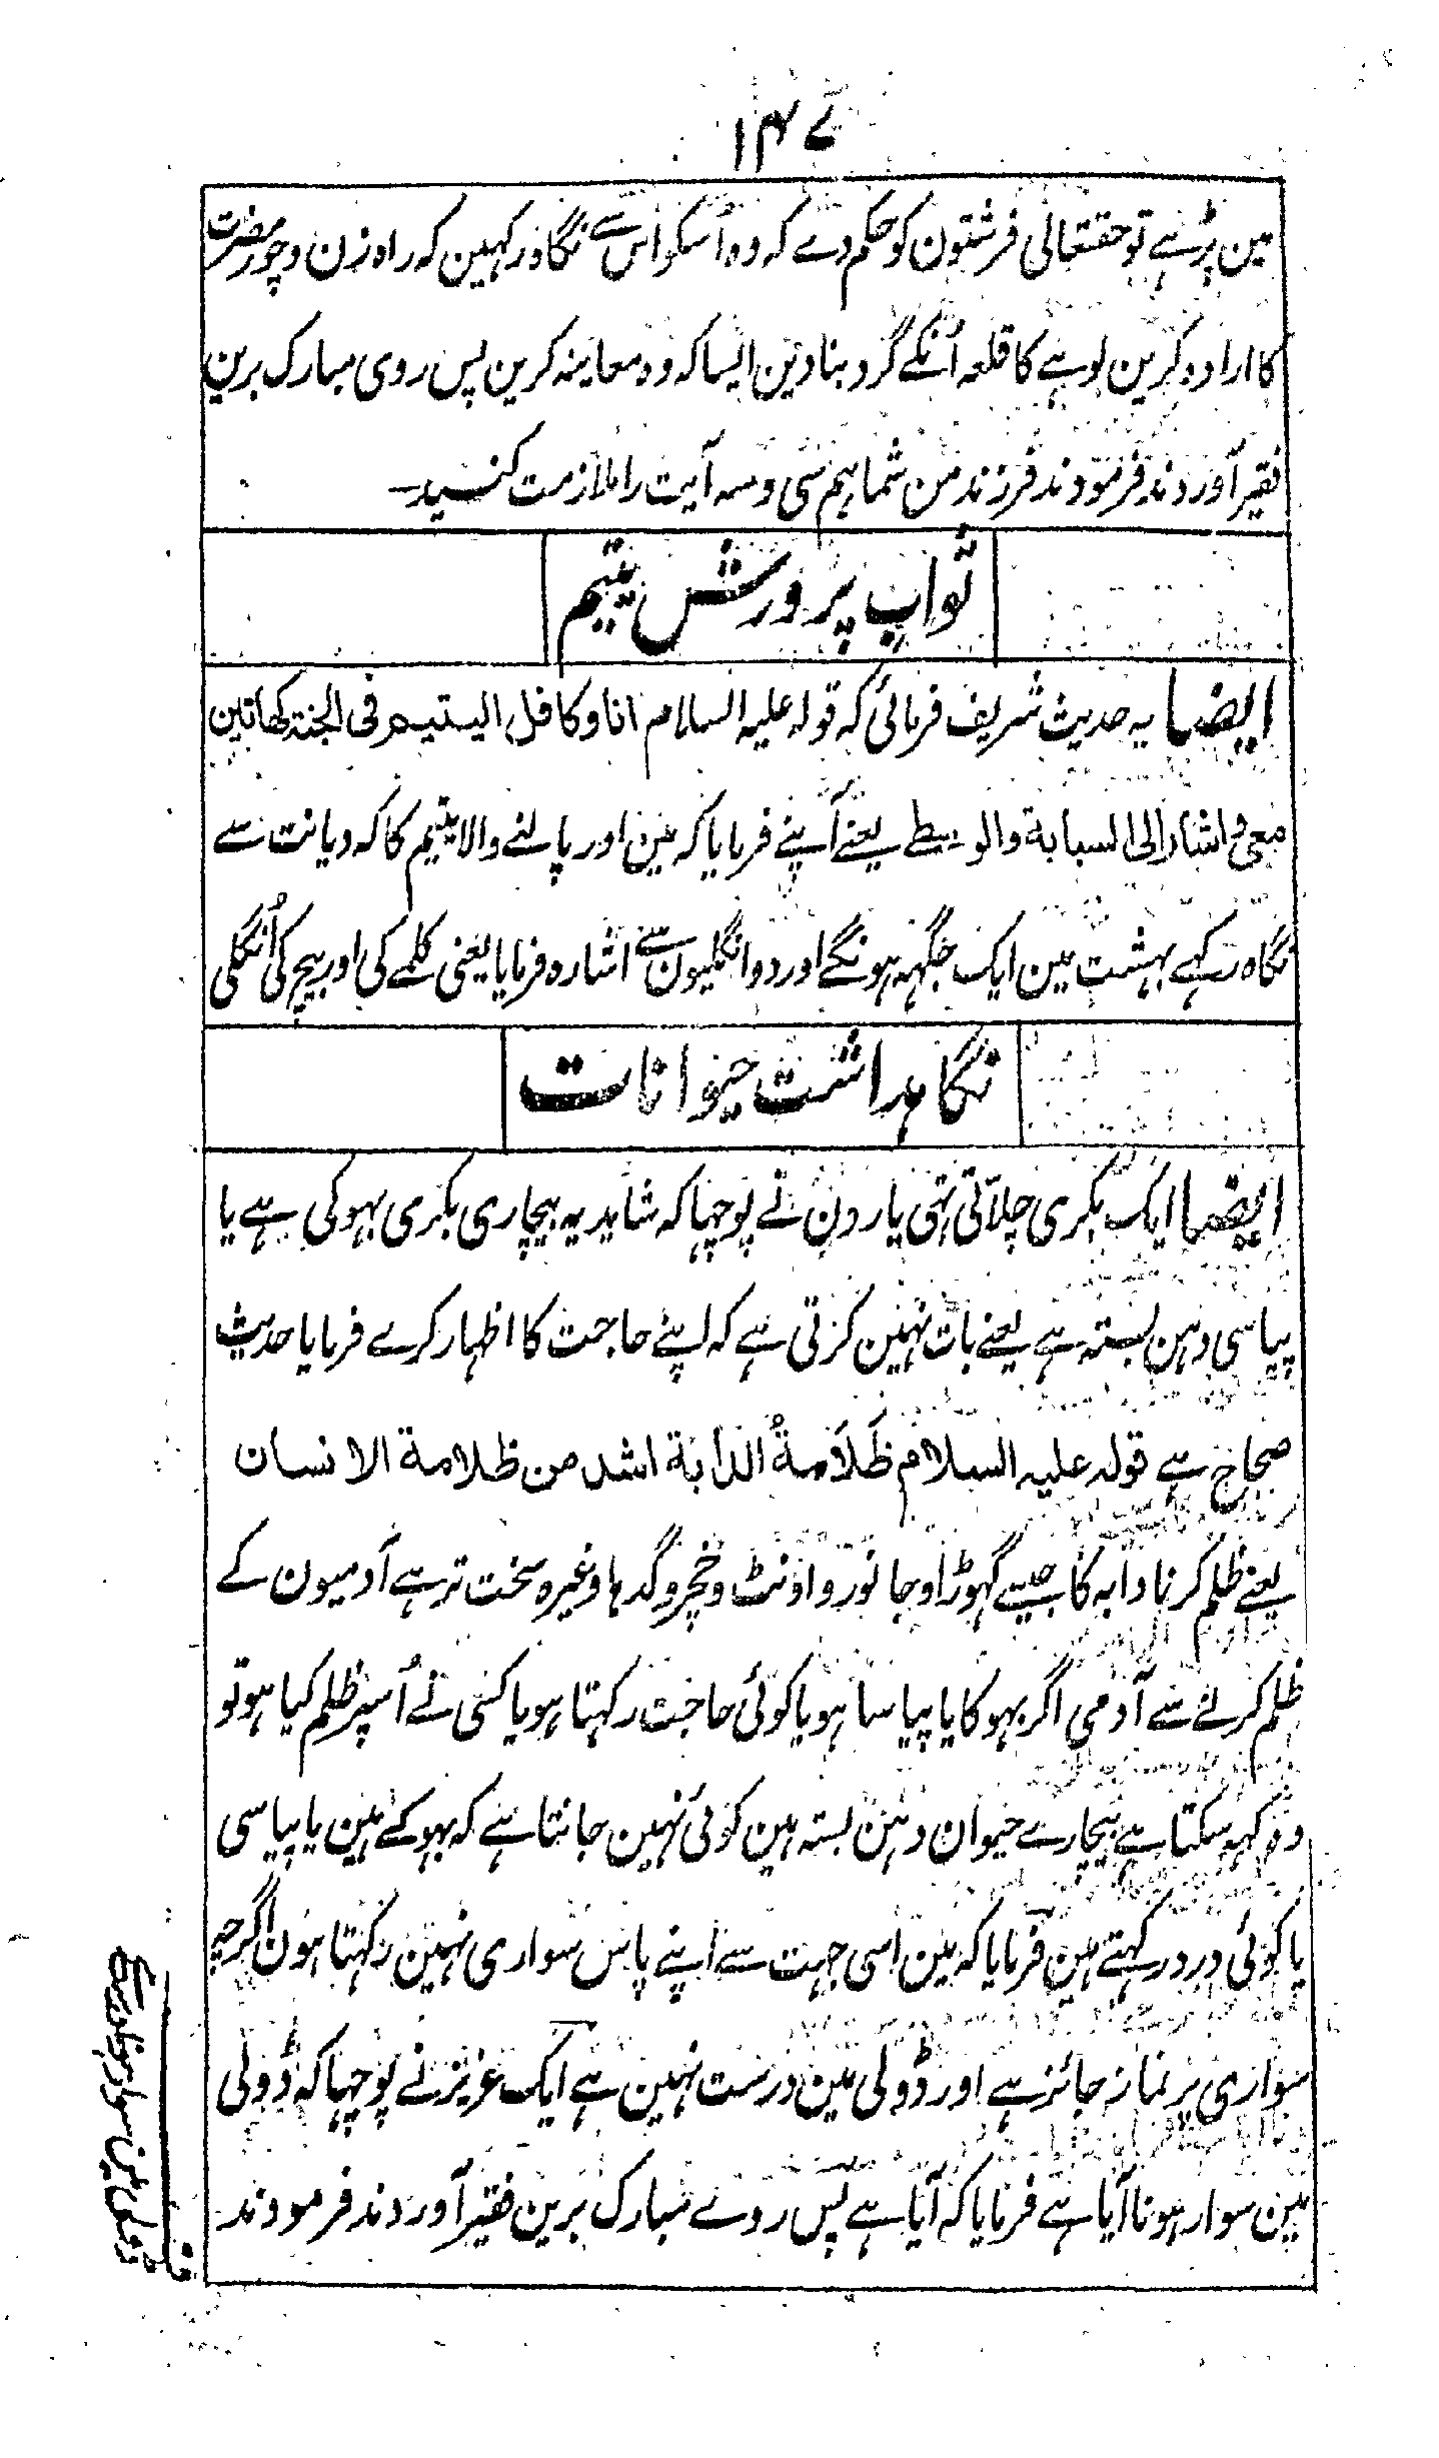 ۱۴۷
مین پڑہے تو حقتعالی فرشتون کو حکم دے کہ وہ اُسکو اس سے نگاہ رکہین کہ راہ زن و چور مضرت
کا ارادہ کرین لوہے کا قلعہ اُنکے گرد بنادین ایسا کہ وہ معاینہ کرین پس روی مبارک برین
فقیر آوردند فرمودند فرزند من شما ہم سی و سہ آیت را ملازمت کنید
ثواب پرورش یتیم
ایضا یہ حدیث شریف فرمائی کہ قولہ علیہ السلام انا وکافل الیتیم فی الجنۃ کھاتین
معی واشار الی السبابۃ والوسطے یعنے آپنے فرمایا کہ مین اور پالنے والا یتیم کا کہ دیانت سے
نگاہ رکہے بہشت مین ایک جگہہ ہونگے اور دو انگلیون سے اشارہ فرمایا یعنی کلمے کی اور بیچ کی اُنگلی
نگاہداشت حیوانات
ایضا ایک بکری چلاتی تہی یارون نے پوچہا کہ شاید یہ بیچاری بکری بہوکی ہے یا
پیاسی دہن بستہ ہے یعنے بات نہین کرتی ہے کہ اپنے حاجت کا اظہار کرے فرمایا حدیث
صحاح ہے قولہ علیہ السلام ظَلَامَۃُ الدابۃ اشد من ظلامۃ الانسان
یعنے ظلم کرنا دابہ کا جیسے گہوڑا وجانور و اونٹ و خچر و گدہا وغیرہ سخت تر ہے آدمیون کے
ظلم کرنے سے آدمی اگر بہوکا یا پیاسا ہو یا کوئی حاجت رکہتا ہو یا کسی نے اُسپر ظلم کیا ہو تو
وہ کہہ سکتا ہے بیچارے حیوان دہن بستہ ہین کوئی نہین جانتا ہے کہ بہوکے ہین یا پیاسی
یا کوئی درد رکہتے ہین فرمایا کہ مین اسی جہت سے اپنے پاس سواری نہین رکہتا ہون اگرچہ
سواری پر نماز جائز ہے اور ڈولی مین درست نہین ہے ایک عزیز نے پوچہا کہ ڈولی
مین سوار ہونا آیا ہے فرمایا کہ آیا ہے پس روے مبارک برین فقیر آوردند فرمودند
ڈولی مین سوار ہونا درست ہے